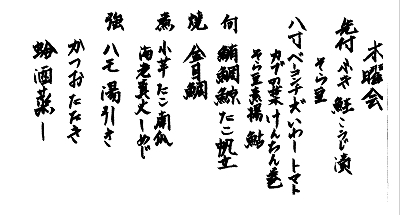 木曜会
先付 ふき 鮭こうじ漬
そら豆
八寸 ベーコンチーズ いわしトマト
カブの葉 けんちん巻
そら豆素揚 鮎
向 鮪 鯛 鯨 たこ 帆立
焼 金目鯛
煮 小芋 たこ 南瓜
海老真丈 しめじ
強 ハモ湯引き
かつおたたき
蛤酒蒸し